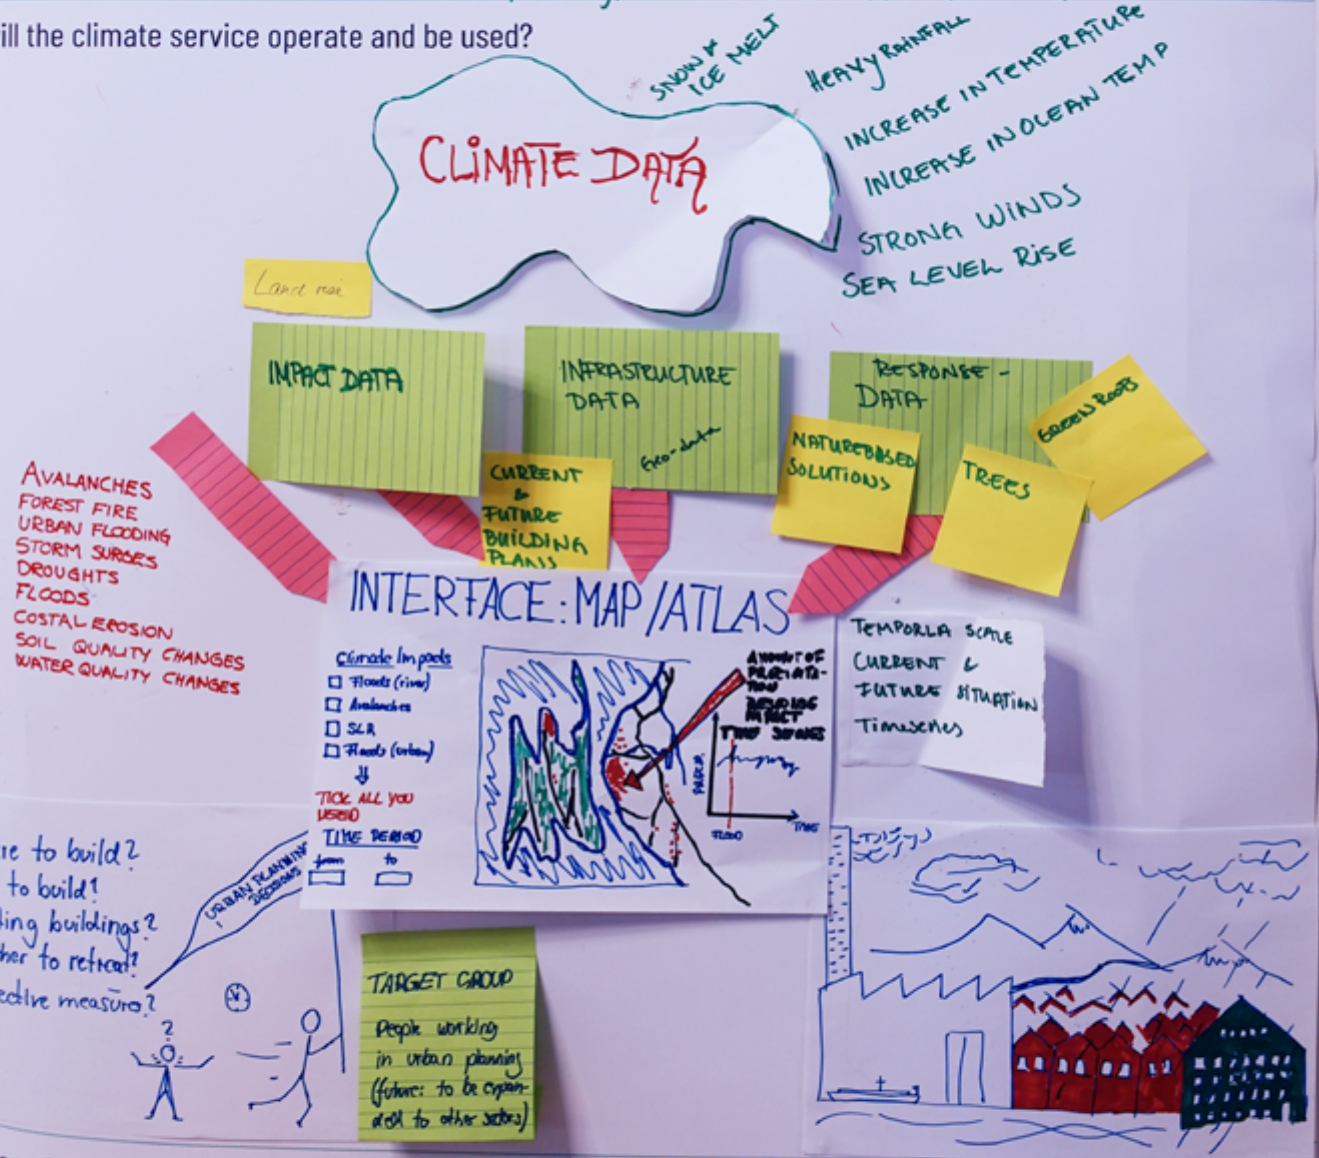 ill the climate service operate and be used?
SNOW &
ICE MELT
HEAVY RAINFALL
INCREASE IN TEMPERATURE
INCREASE IN OCEAN TEMP
STRONG WINDS
SEA LEVEL RISE
CLIMATE DATA
Land
IMPACT DATA
INFRASTRUCTURE
DATA
Geo-data
RESPONSE-
DATA
CURRENT
&
FUTURE
BUILDING
PLANS
NATUREBASED
SOLUTIONS
TREES
GREEN ROOFS
AVALANCHES
FOREST FIRE
URBAN FLOODING
STORM SURGES
DROUGHTS
FLOODS
COSTAL EROSION
SOIL QUALITY CHANGES
WATER QUALITY CHANGES
INTERFACE: MAP/ATLAS
Climate Impacts
Floods (river)
Avalanches
SLR
Floods (urban)
TICK ALL YOU
NEED
TIME PERIOD
from to
AMOUNT OF
PRECIPITA-
TION
IMPACT
TIME SERIES
PRECIP.
FLOOD
TIME
TEMPORLA SCALE
CURRENT &
FUTURE SITUATION
Timeseries
re to build?
to build?
ing buildings?
her to retreat?
ective measure?
URBAN PLANNING
DECISIONS
?
TARGET GROUP
People working
in urban planning
(future: to be expan-
ded to other sectors)